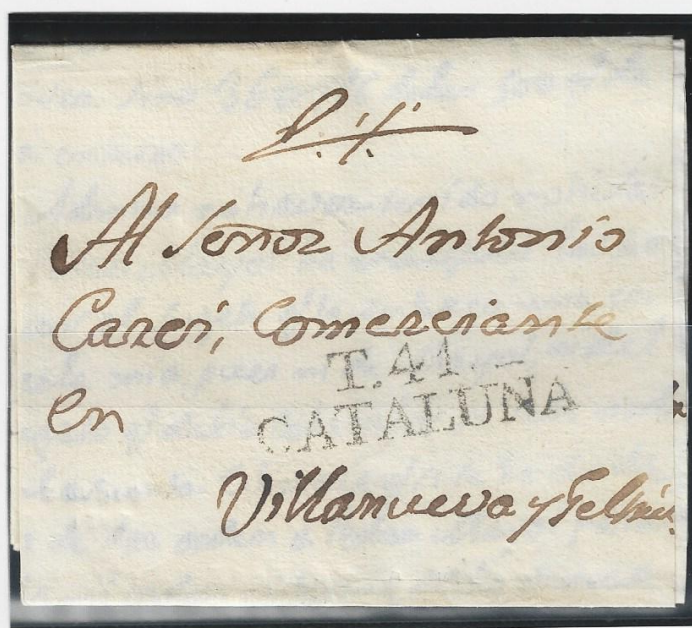 Al Señor Antonio
Carci, Comerciante
T.41.
en
CATALUNA
Villanueva y Geltru.